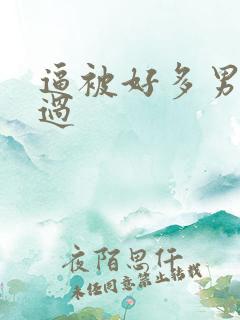 逼被好多男
過
夜陌思仟
未经同意禁止转载